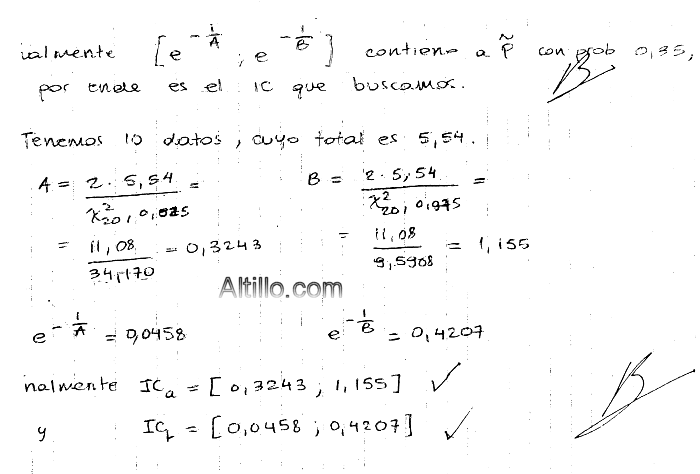 ialmente [e^{-1/A} ; e^{-1/B}] contiene a P̃ con prob 0,95,
por ende es el IC que buscamos.
Tenemos 10 datos, cuyo total es 5,54.
A = 2·5,54 / χ²20, 0,025 =    B = 2·5,54 / χ²20, 0,975 =
= 11,08 / 34,170 = 0,3243    = 11,08 / 9,5908 = 1,155
Altillo.com
e^{-1/A} = 0,0458    e^{-1/B} = 0,4207
nalmente ICa = [0,3243 ; 1,155] ✓
y ICq = [0,0458 ; 0,4207] ✓